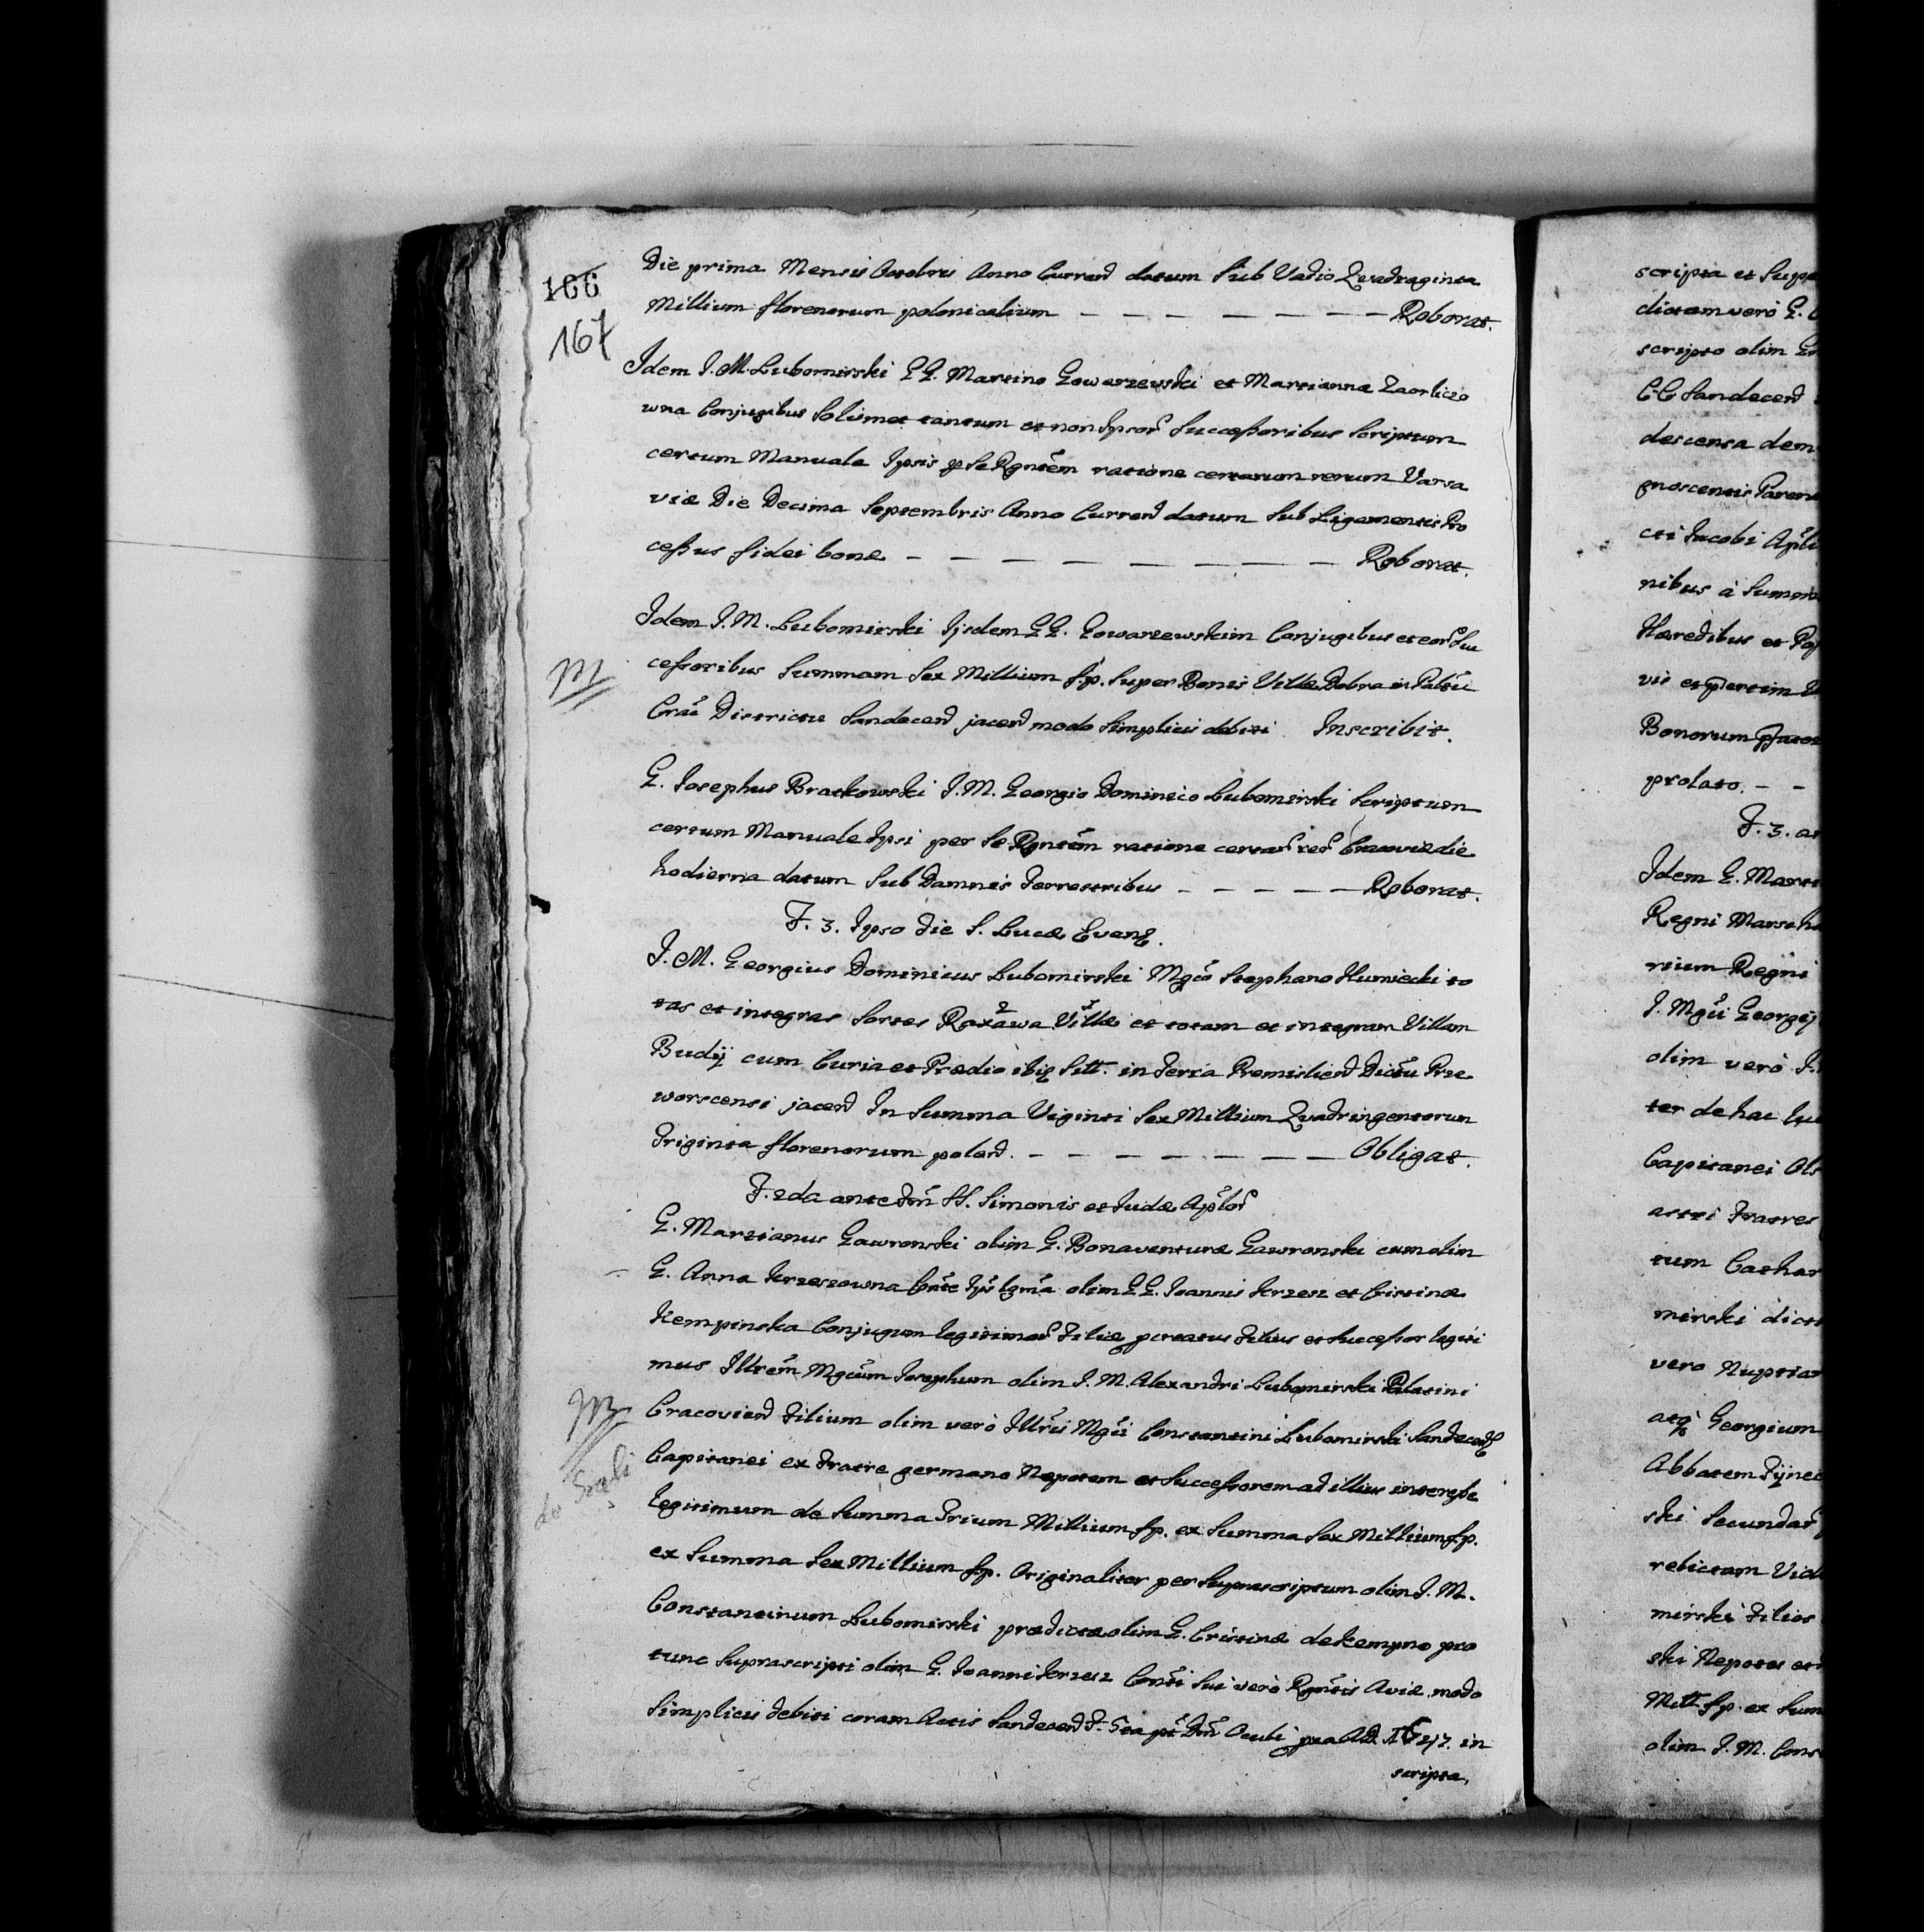 166
167
Die prima Mensis Octobris Anno Currend datum Sub Vadio Quadraginta
Millium florenorum polonicalium — — — — — — Roborat.
Idem J. M. Lubomirski GG. Martino Gowarzewski et Martianna Zaorlico
wna Conjugibus Solumet tantum et non Ipsor Successoribus Scriptum
certum Manuale Ipsis p Se Rgntem ratione certarum rerum Varsa
viæ Die Decima Septembris Anno Currend datum Sub Ligamentis Pro
cessus fidei bonæ — — — — — — — — Roborat.
Idem J. M. Lubomirski Ijsdem GG. Gowarzewskim Conjugibus et eor Suc
cessoribus Summam Sex Millium f. p. Super Bonis Villæ Dobra in Paltu
Crac Districtu Sandecend jacend modo Simplicis debiti Inscribit.
G. Josephus Bratkowski J. M. Georgio Dominico Lubomirski Scriptum
certum Manuale Ipsi per Se Rgntem ratione certar rer Cracoviæ die
hodierna datum Sub Damnis Terrestribus — — — — — Roborat.
F. 3. Ipso die S. Lucæ Evang.
J. M. Georgius Dominicus Lubomirski Mgco Stephano Humiecki to
tas et integras Sortes Rozawa Villæ et totam et integram Villam
Budÿ cum Curia et Prædio ibiq Sitt. in Terra Premisliend Dictu Prze
worscensi jacend In Summa Viginti Sex Millium Quadringentorum
Triginta florenorum polond. — — — — — — — Obligat.
F. 2da ante Fm SS. Simonis et Judæ Aplor
G. Martianus Gawronski olim G. Bonaventuræ Gawronski cum olim
G. Anna Krzeszowna Cnte Ips lgma olim GG. Joannis Krzesz et Cristinæ
Kempinska Conjugum legitimar Filiæ pcreatus Filius et Successor legiti
mus Illrem Mgcum Josephum olim J. M. Alexandri Lubomirski Palatini
Cracoviend Filium olim verò Illris Mgci Constantini Lubomirski Sandecend
Capitanei ex Fratre germano Nepotem et Successorem ad illius interesse
legitimum de Summa Trium Millium f. p. ex Summa Sex Millium f. p.
ex Summa Sex Millium f. p. Originaliter per Suprascriptum olim J. M.
Constantinum Lubomirski prædictæ olim G. Cristinæ de Kempno pro
tunc Suprascripti olim G. Joanni Krzesz Conti Sui verò Rgntis Aviæ modo
Simplicis debiti coram Actis Sandecend F. 5ta pt Dm Oculi pxa AD
scripta,
scripta et Supra
dictam verò G.
scripto olim
CC Sandecend
descensa dem
gnoscentis
cti Jacobi Apli
nibus à Summa
Hæredibus et
Bonorum
prolato. — —
F. 3.
Idem G. Marti
Regni Marscha
rium Regni
J. Mgci Georgÿ
olim verò J.
ter de hac lu
Capitanei
Fratres
tum Cathar
mirski dict
vero Nuptiar
atq Georgium
Abbatem Tÿnec
ski Secundar
relictam Vid
mirski Filios
ski Nepotes et
Mill f. p. ex Sum
olim J. M. Cons